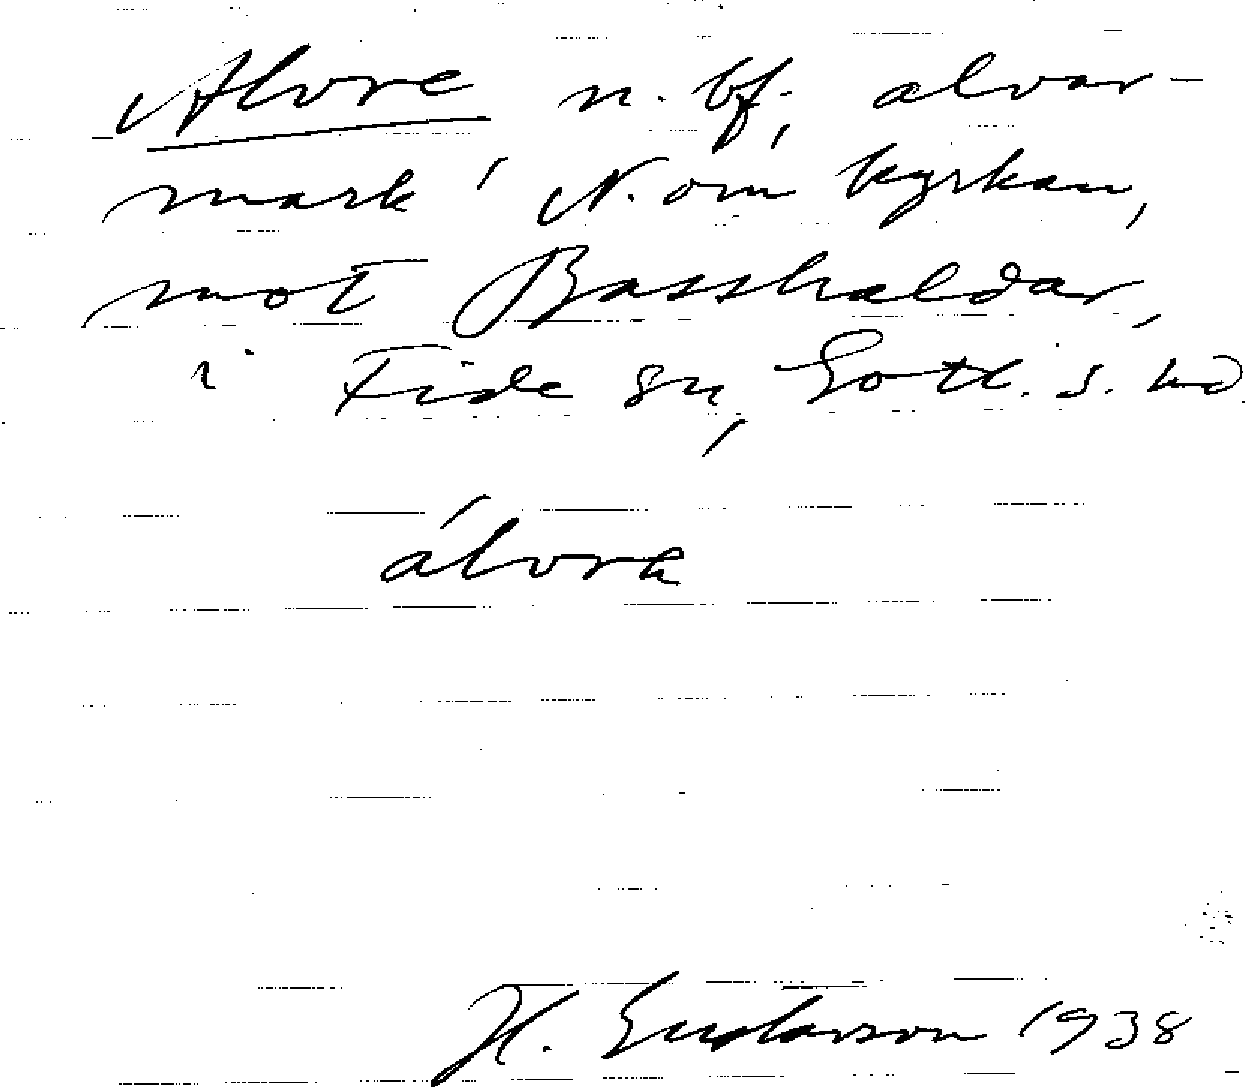 Alvre n. bf., alvar-
mark' N. om kyrkan,
mot Basshaldar,
i Fide sn, Gotl. s. hd
álvrɛ
H. Gustavson 1938